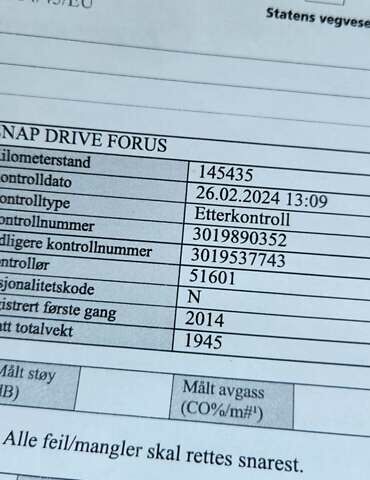 /EU
Statens vegvese
SNAP DRIVE FORUS
ilometerstand 145435
ontrolldato 26.02.2024 13:09
ontrolltype Etterkontroll
ontrollnummer 3019890352
dligere kontrollnummer 3019537743
ontrollør 51601
sjonalitetskode N
gistrert første gang 2014
att totalvekt 1945
Målt støy
dB)
Målt avgass
(CO%/m#¹)
Alle feil/mangler skal rettes snarest.